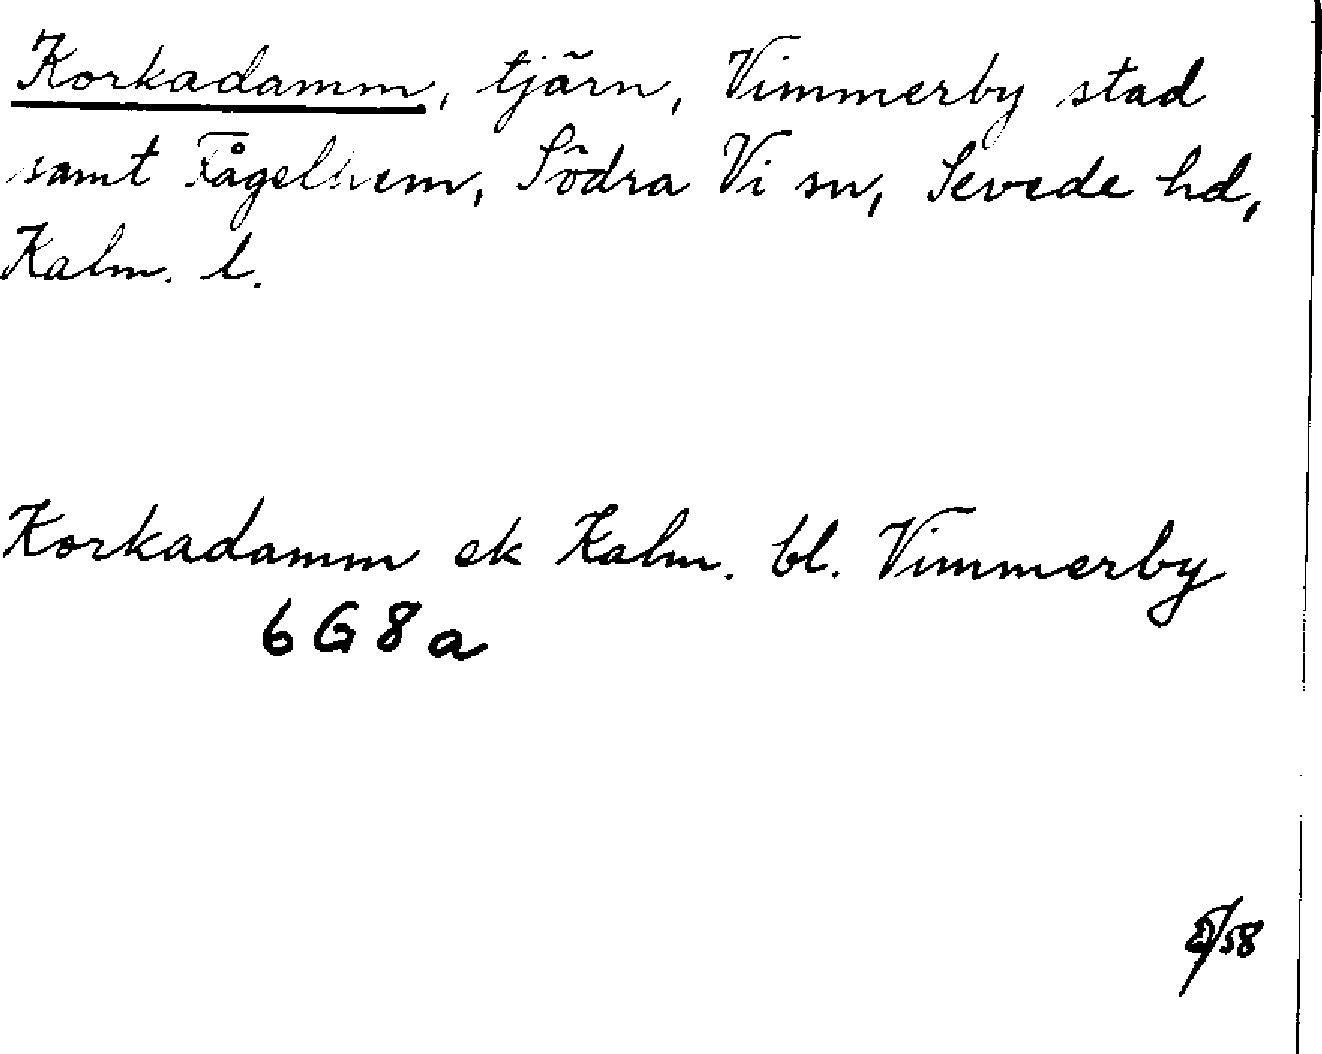 Korkadamm, tjärn, Vimmerby stad
samt Fågelhem, Södra Vi sn, Sevede hd,
Kalm. l.
Korkadamm ek Kalm. bl. Vimmerby
6 G 8 a
/58